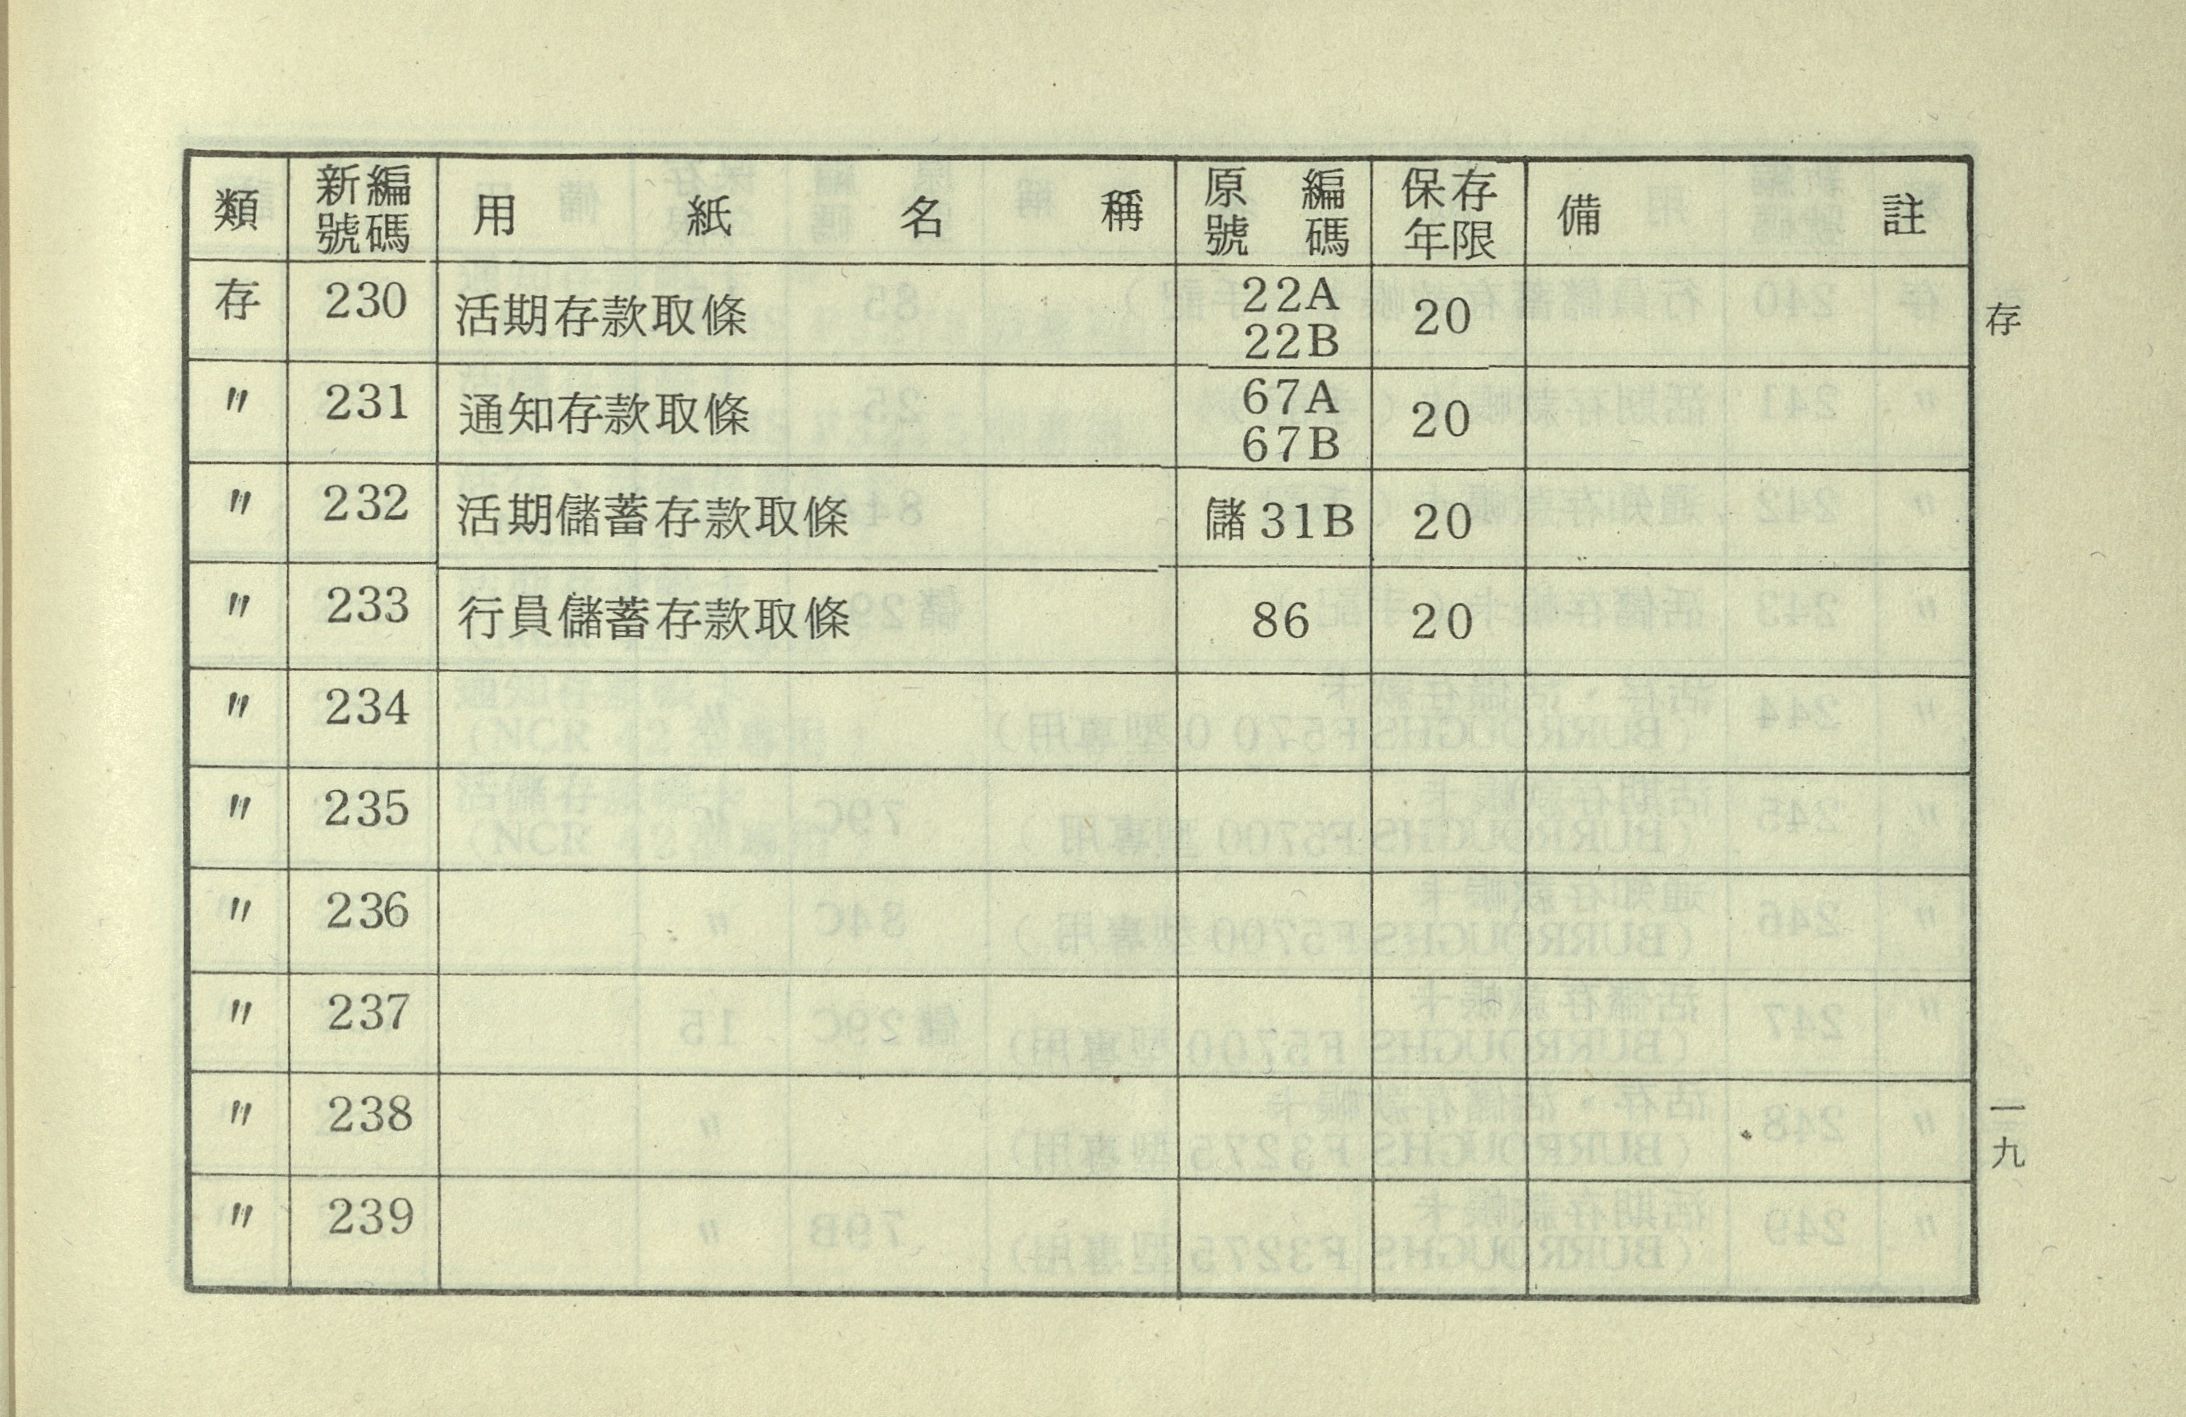 類 新編號碼 用紙名稱 原編號碼 保存年限 備註
存 230 活期存款取條 22A 22B 20
〃 231 通知存款取條 67A 67B 20
〃 232 活期儲蓄存款取條 儲31B 20
〃 233 行員儲蓄存款取條 86 20
〃 234
〃 235
〃 236
〃 237
〃 238
〃 239
存
一九